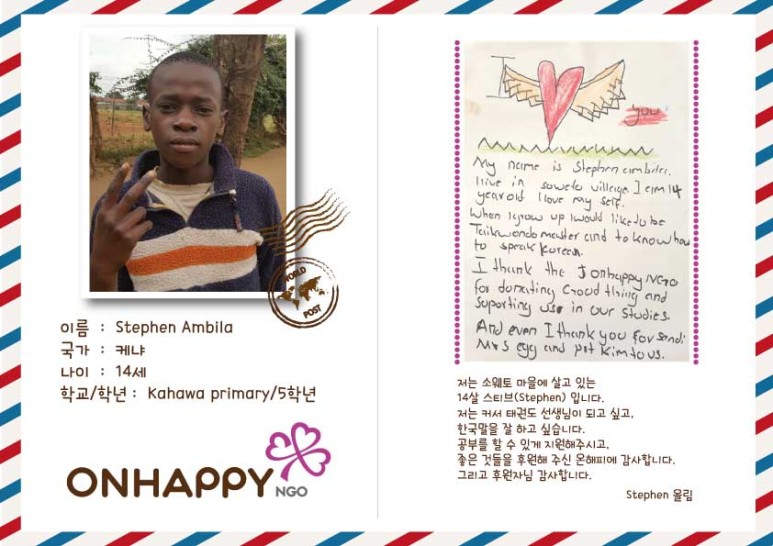 WORLD
POST
이름 : Stephen Ambila
국가 : 케냐
나이 : 14세
학교/학년 : Kahawa primary/5학년
ONHAPPY
NGO
I
you
My name is Stephen ambilla.
I live in soweto village. I am 14
year old I love my self.
When I grow up I would like to be
Taikwondo master and to know how
to speak korean.
I thank the Jonhappy NGO
for donating Good thing and
suporting use in our studies.
And even I thank you for sendi
Mrs egg and pst Kim to us.
저는 소웨토 마을에 살고 있는
14살 스티브(Stephen) 입니다.
저는 커서 태권도 선생님이 되고 싶고,
한국말을 잘 하고 싶습니다.
공부를 할 수 있게 지원해주시고,
좋은 것들을 후원해 주신 온해피에 감사합니다.
그리고 후원자님 감사합니다.
Stephen 올림